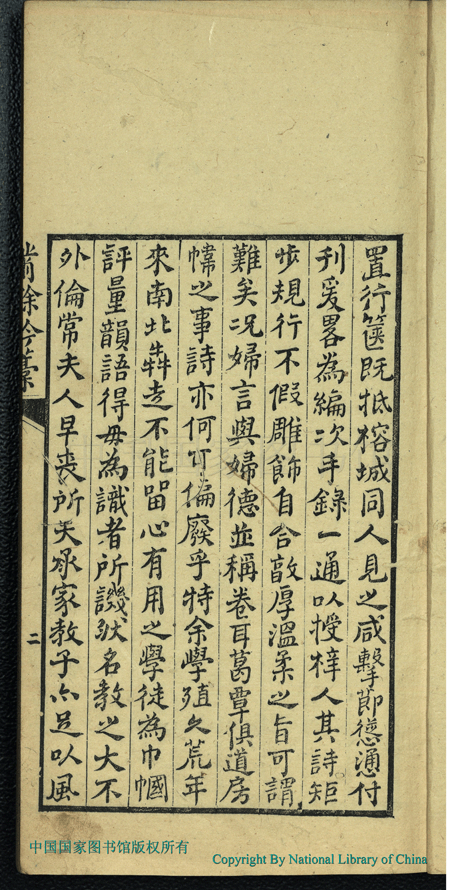 置行篋既抵榕城同人見之咸擊節慫慂付
刊爰畧為編次手錄一通以授梓人其詩矩
步規行不假雕飾自合敦厚溫柔之旨可謂
難矣况婦言與婦德並稱卷耳葛覃俱道房
幃之事詩亦何可偏廢乎特余學殖久荒年
來南北犇走不能畱心有用之學徒為巾幗
評量韻語得毋為識者所譏然名教之大不
外倫常夫人早喪所天承家教子亦足以風
餘吟藁
二
中国国家图书馆版权所有
Copyright By National Library of China